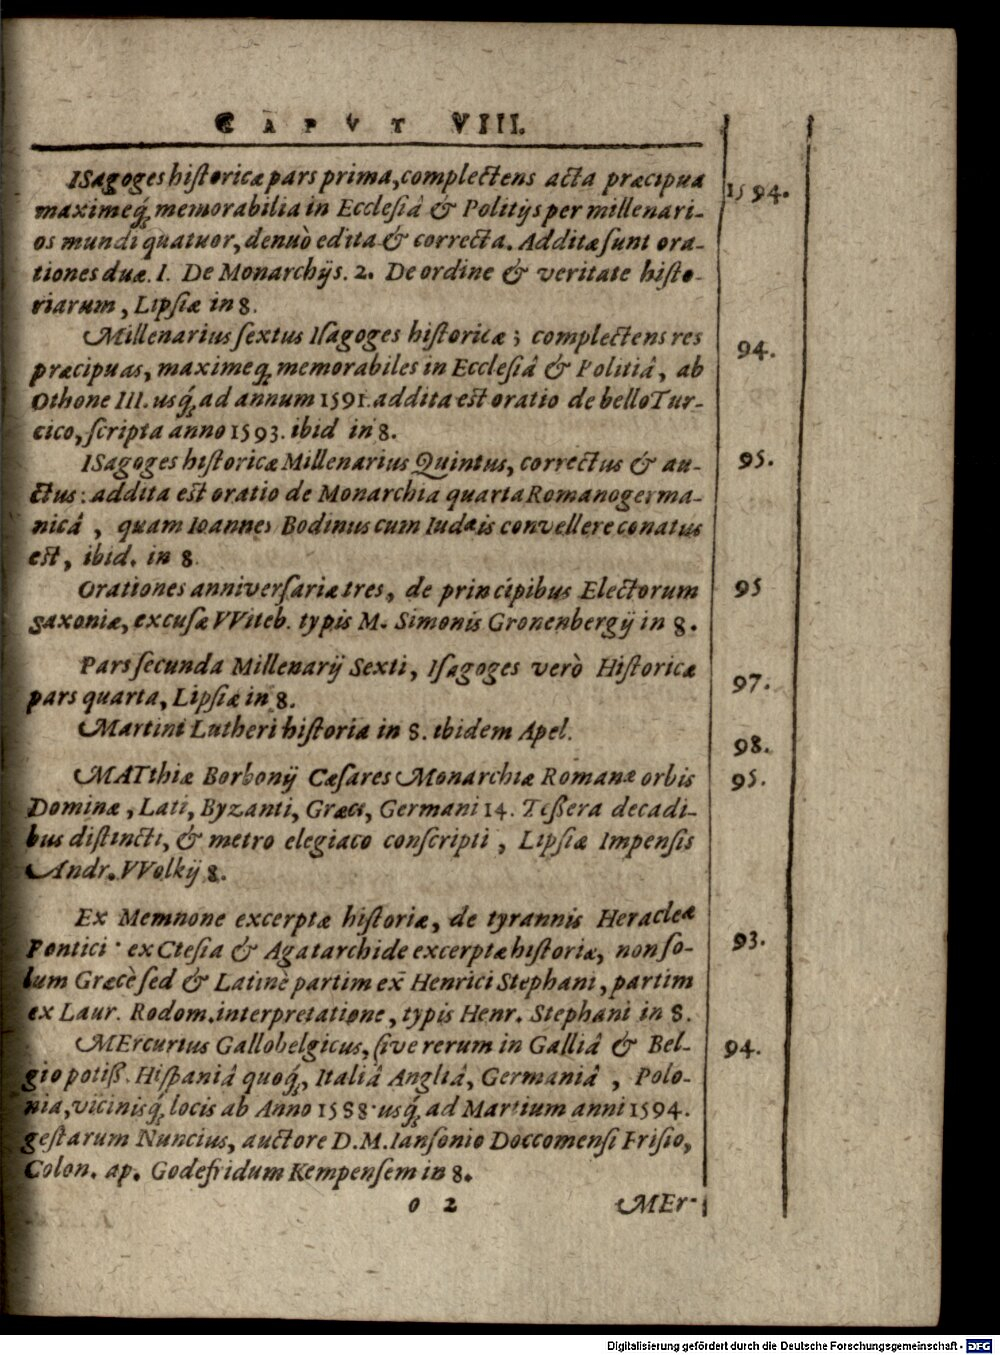 CAPVT VIII.
ISagoges historicæ pars prima, complectens acta præcipua 1594.
maximeq́, memorabilia in Ecclesiâ & Politijs per millenari-
os mundi quatuor, denuò edita & correcta. Additæ sunt ora-
tiones duæ. 1. De Monarchijs. 2. De ordine & veritate histo-
riarum, Lipsiæ in 8.
Millenarius sextus Isagoges historicæ; complectens res 94.
præcipuas, maximeq́, memorabiles in Ecclesiâ & Politiâ, ab
Othone III. usq́, ad annum 1591. addita est oratio de bello Tur-
cico, scripta anno 1593. ibid in 8.
ISagoges historicæ Millenarius Quintus, correctus & au- 95.
ctus: addita est oratio de Monarchia quarta Romanogerma-
nicâ, quam Ioannes Bodinus cum Iudæis convellere conatus
est, ibid. in 8.
Orationes anniversariæ tres, de principibus Electorum 95
saxoniæ, excusæ VViteb. typis M. Simonis Gronenbergij in 8.
Pars secunda Millenarij Sexti, Isagoges verò Historicæ
pars quarta, Lipsiæ in 8. 97.
Martini Lutheri historia in 8. ibidem Apel. 98.
MATthiæ Borbonij Cæsares Monarchiæ Romanæ orbis 95.
Dominæ, Lati, Byzanti, Græci, Germani 14. Tessera decadi-
bus distincti, & metro elegiaco conscripti, Lipsiæ Impensis
Andr. VVolkij 8.
Ex Memnone excerptæ historiæ, de tyrannis Heracleæ
Pontici ex Ctesia & Agatarchide excerptæ historiæ, non so- 93.
lum Græcè sed & Latinè partim ex Henrici Stephani, partim
ex Laur. Rodom. interpretatione, typis Henr. Stephani in 8.
MErcurius Gallobelgicus, sive rerum in Galliâ & Bel- 94.
gio potiß. Hispaniâ quoq́, Italiâ Angliâ, Germaniâ, Polo-
nia, vicinisq́, locis ab Anno 1588 usq́, ad Martium anni 1594.
gestarum Nuncius, auctore D. M. Iansonio Doccomensi Frisio,
Colon. ap. Godefridum Kempensem in 8.
O 2 MEr-
Digitalisierung gefördert durch die Deutsche Forschungsgemeinschaft - DFG